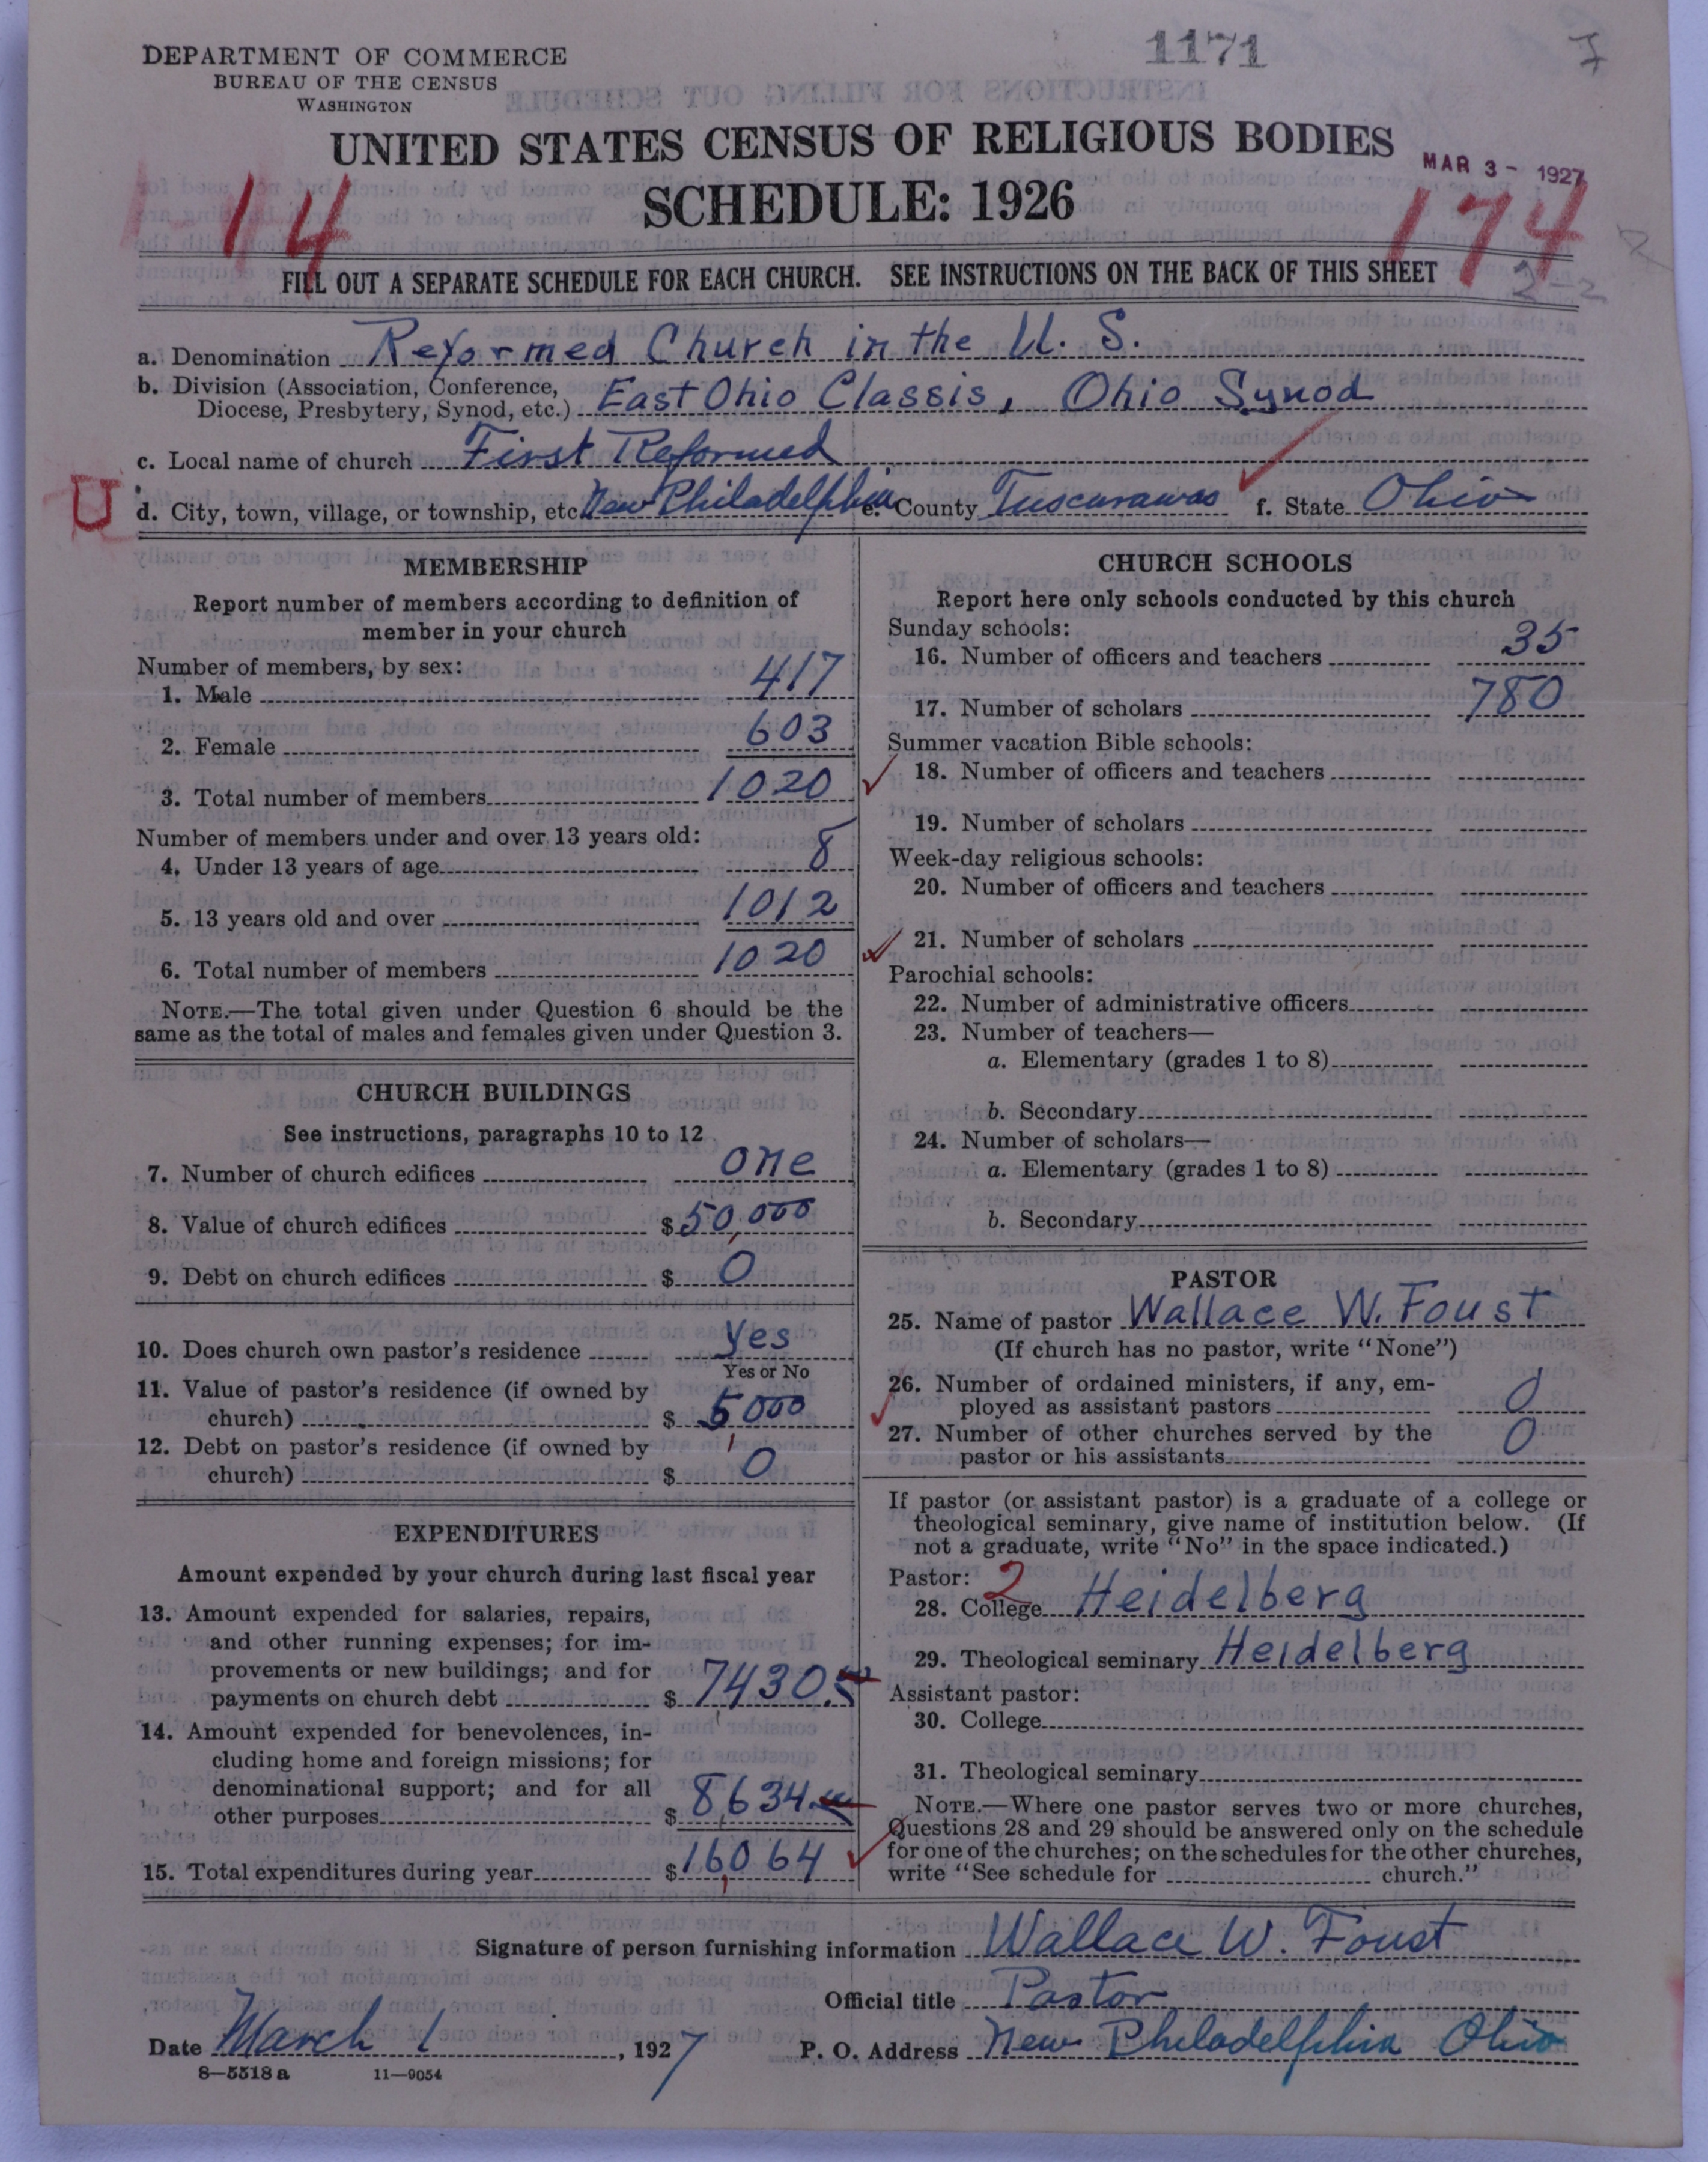 DEPARTMENT OF COMMERCE
BUREAU OF THE CENSUS
WASHINGTON
1171
UNITED STATES CENSUS OF RELIGIOUS BODIES
SCHEDULE: 1926
MAR 3 - 1927
14
174
FILL OUT A SEPARATE SCHEDULE FOR EACH CHURCH. SEE INSTRUCTIONS ON THE BACK OF THIS SHEET
a. Denomination Reformed Church in the U. S.
b. Division (Association, Conference,
Diocese, Presbytery, Synod, etc.) East Ohio Classis, Ohio Synod
c. Local name of church First Reformed
U
d. City, town, village, or township, etc. New Philadelphia e. County Tuscarawas f. State Ohio
MEMBERSHIP
Report number of members according to definition of
member in your church
Number of members, by sex:
1. Male 417
2. Female 603
3. Total number of members 1020
Number of members under and over 13 years old:
4. Under 13 years of age 8
5. 13 years old and over 1012
6. Total number of members 1020
NOTE.—The total given under Question 6 should be the
same as the total of males and females given under Question 3.
CHURCH BUILDINGS
See instructions, paragraphs 10 to 12
7. Number of church edifices one
8. Value of church edifices $50,000
9. Debt on church edifices $ 0
10. Does church own pastor's residence Yes
Yes or No
11. Value of pastor's residence (if owned by
church) $ 5000
12. Debt on pastor's residence (if owned by
church) $ 0
EXPENDITURES
Amount expended by your church during last fiscal year
13. Amount expended for salaries, repairs,
and other running expenses; for im-
provements or new buildings; and for
payments on church debt $ 7430.
14. Amount expended for benevolences, in-
cluding home and foreign missions; for
denominational support; and for all
other purposes $ 8634.
15. Total expenditures during year $16064
CHURCH SCHOOLS
Report here only schools conducted by this church
Sunday schools:
16. Number of officers and teachers 35
17. Number of scholars 780
Summer vacation Bible schools:
18. Number of officers and teachers
19. Number of scholars
Week-day religious schools:
20. Number of officers and teachers
21. Number of scholars
Parochial schools:
22. Number of administrative officers
23. Number of teachers—
a. Elementary (grades 1 to 8)
b. Secondary
24. Number of scholars—
a. Elementary (grades 1 to 8)
b. Secondary
PASTOR
25. Name of pastor Wallace W. Foust
(If church has no pastor, write "None")
26. Number of ordained ministers, if any, em-
ployed as assistant pastors 0
27. Number of other churches served by the
pastor or his assistants 0
If pastor (or assistant pastor) is a graduate of a college or
theological seminary, give name of institution below. (If
not a graduate, write "No" in the space indicated.)
Pastor: 2
28. College Heidelberg
29. Theological seminary Heidelberg
Assistant pastor:
30. College
31. Theological seminary
NOTE.—Where one pastor serves two or more churches,
Questions 28 and 29 should be answered only on the schedule
for one of the churches; on the schedules for the other churches,
write "See schedule for church."
Signature of person furnishing information Wallace W. Foust
Official title Pastor
Date March 1, 1927 P. O. Address New Philadelphia Ohio
8—5518 a 11—9054